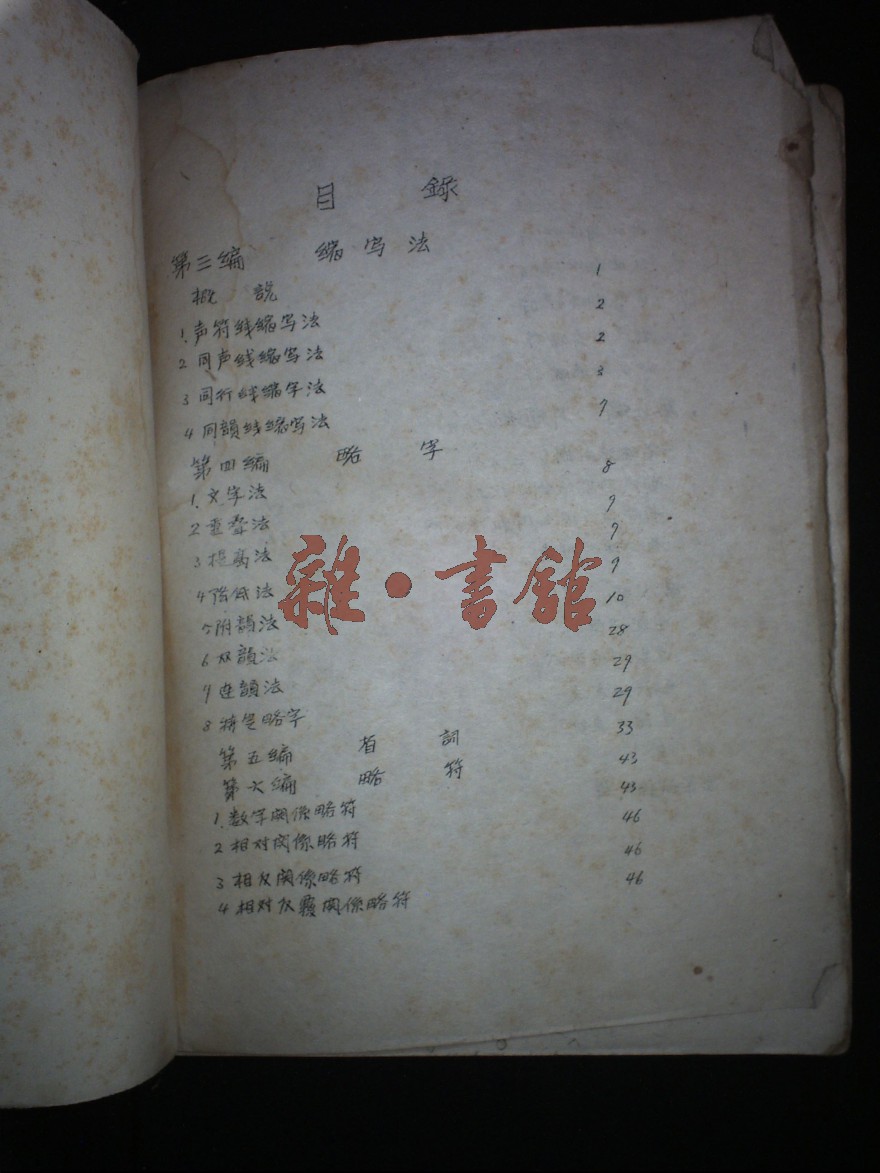 目 録
第三編 缩写法
概 説 1
1.声符线缩写法 2
2 同声线缩写法 2
3 同行线缩字法 3
4 同韻线缩写法 7
第四編 略 字
1.文字法 8
2 重叠法 9
3 提高法 9
4 强低法 9
5 附韻法 10
6 双韻法 28
7 连韻法 29
8 特定略字 29
第五編 首 詞 33
第六編 略 符 43
1.数字関係略符 43
2 相对関係略符 46
3 相反関係略符 46
4 相对反覆関係略符 46
雜·書館